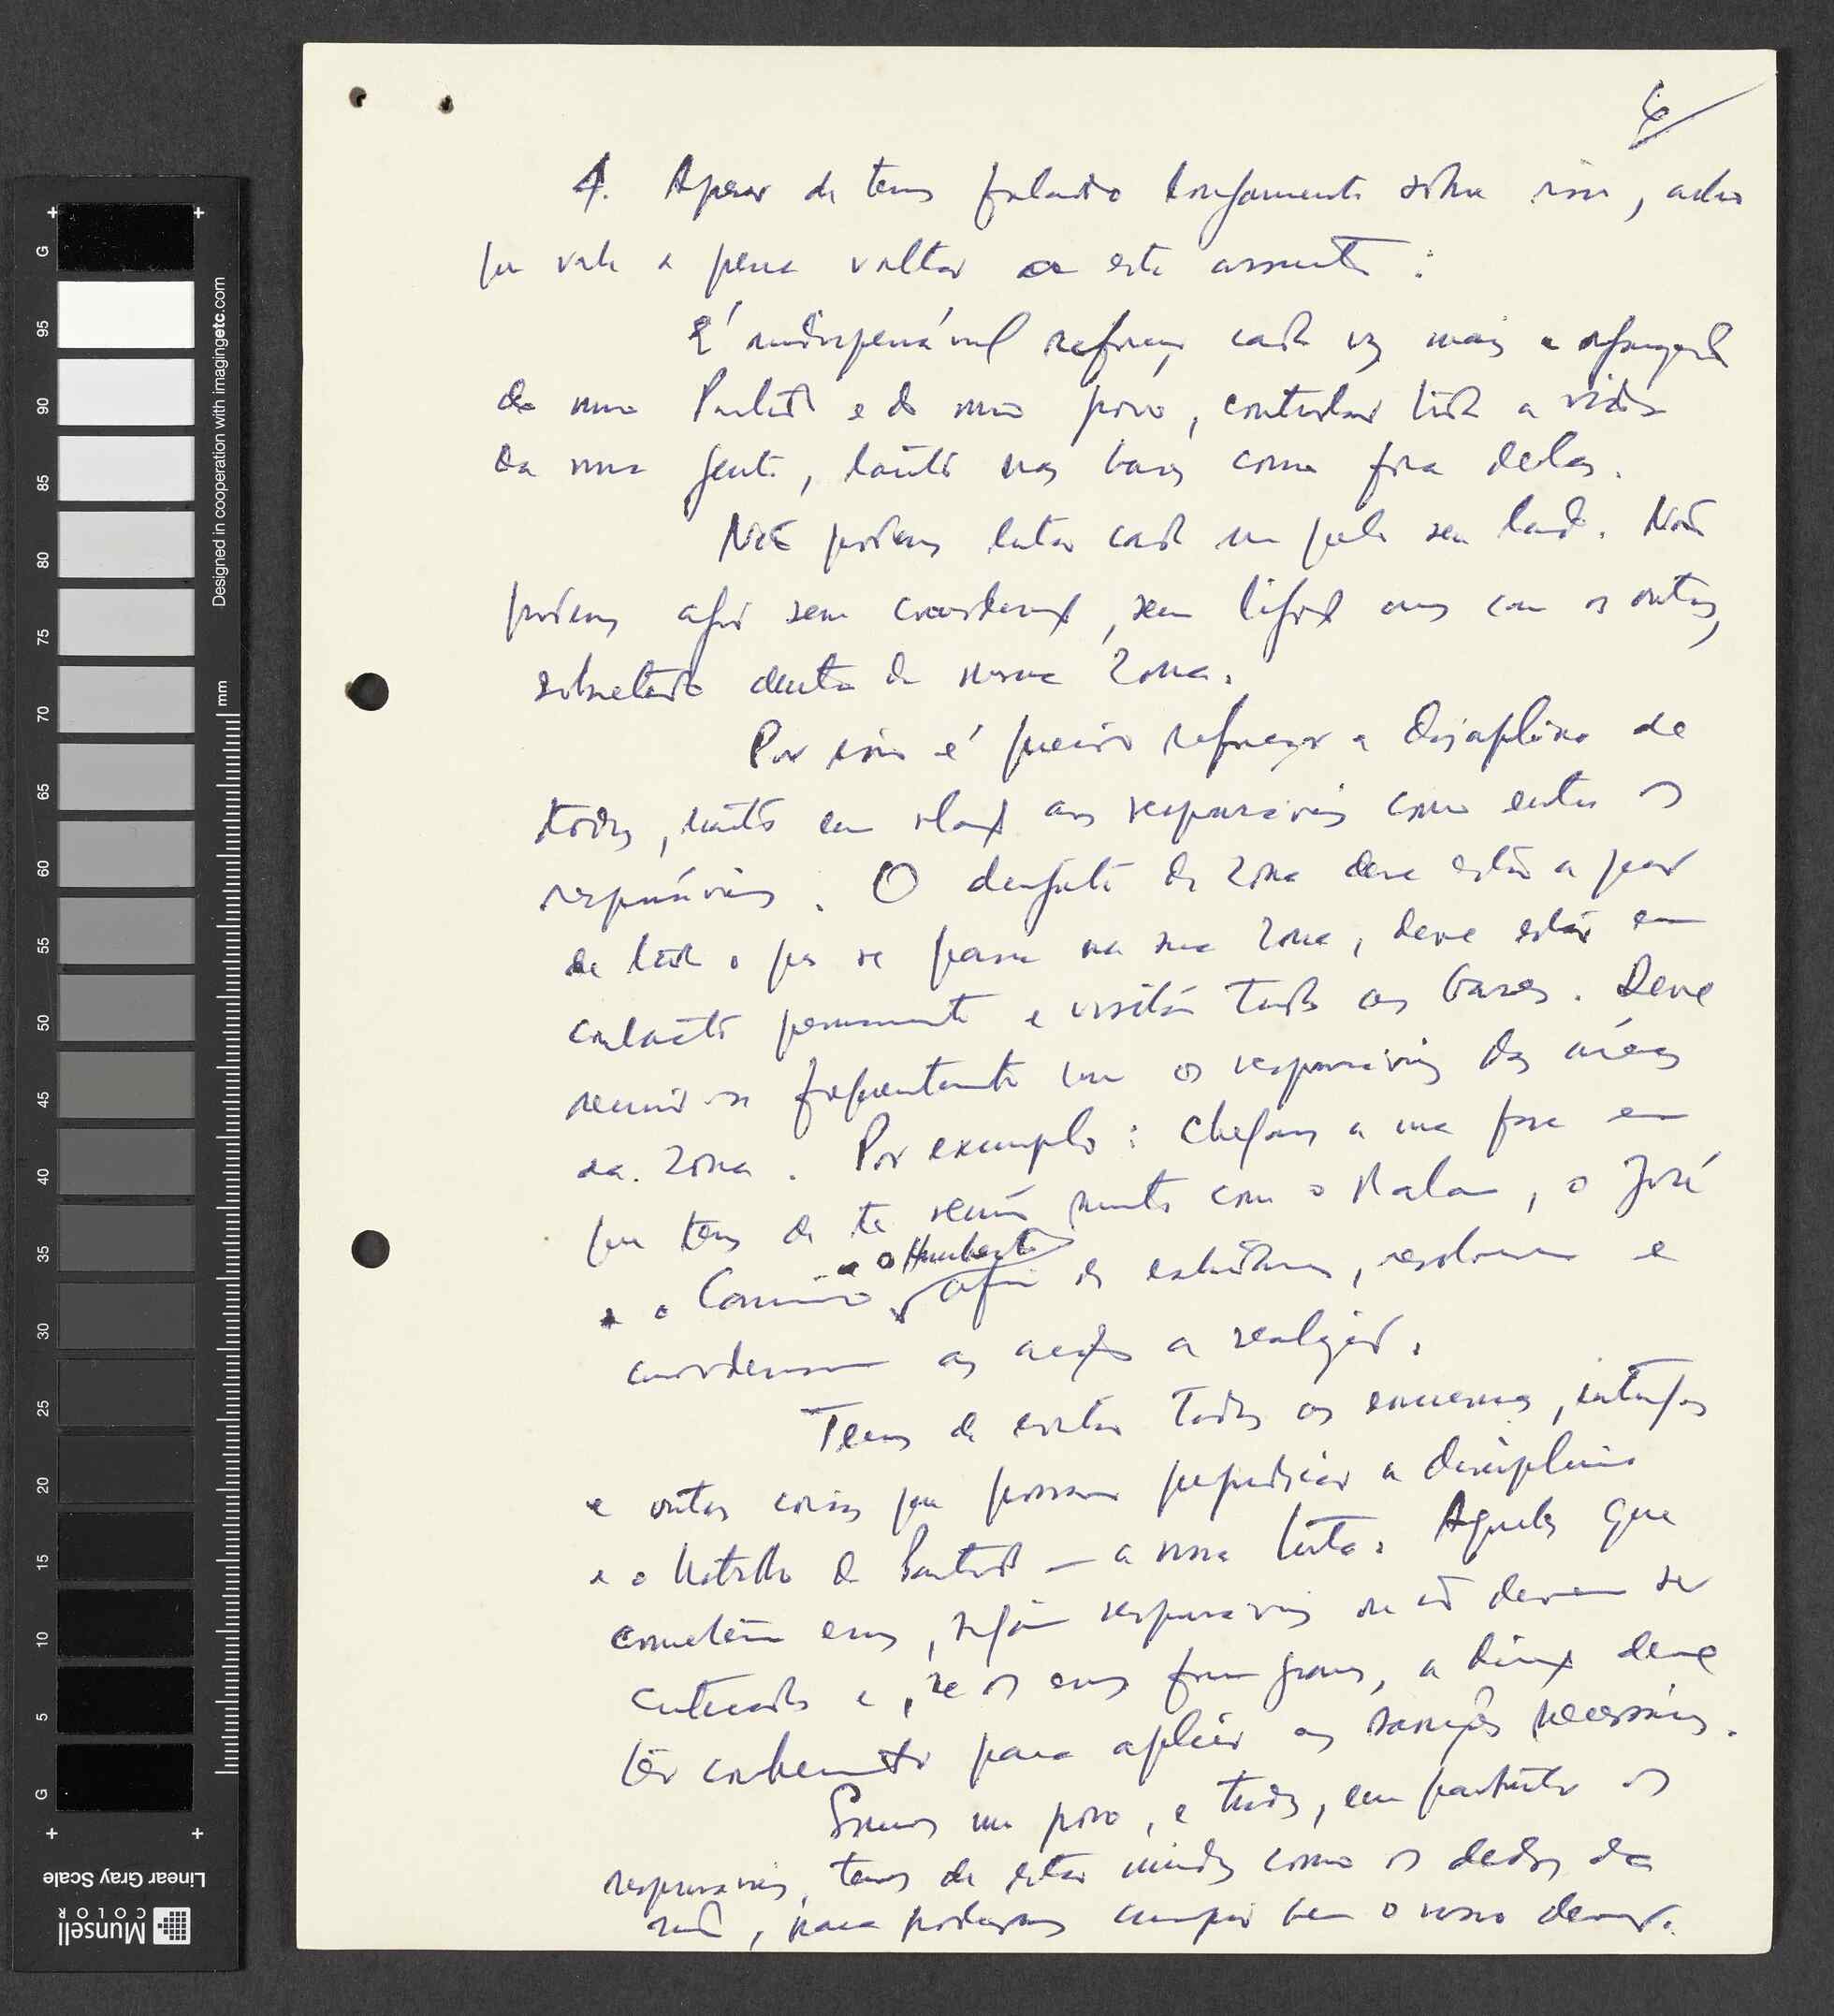 6
4. Apesar de termos falado longamente sobre isso, acho
que vale a pena voltar a este assunto:
É indispensável reforçar cada vez mais a organização
do nosso Partido e do nosso povo, controlar toda a vida
da nossa gente, tanto nas bases como fora delas.
Não podemos lutar cada um pelo seu lado. Não
podemos agir sem coordenação, sem ligação uns com os outros,
sobretudo dentro da mesma Zona.
Por isso é preciso reforçar a disciplina de
todos, tanto em relação aos responsáveis como entre os
responsáveis. O dirigente da Zona deve estar a par
de tudo o que se passa na sua Zona, deve estar em
contacto permanente e visitar todas as bases. Deve
reunir-se frequentemente com os responsáveis das áreas
da Zona. Por exemplo: Chegamos a uma fase em
que tens de te reunir muito com o Malam, o José
e o Camilo e o Humberto afim de estudarem, resolverem e
coordenarem as acções a realizar.
Temos de evitar todos os , intrigas
e outras coisas que possam prejudicar a disciplina
e o trabalho do Partido — a nossa luta. Aqueles que
cometem erros, sejam responsáveis ou não devem ser
criticados e, se os erros forem graves, a direcção deve
ter conhecimento para aplicar as sanções necessárias.
Somos um povo, e todos, em particular os
responsáveis, temos de estar unidos como os dedos da
mão, para podermos cumprir bem o nosso dever.
Designed in cooperation with imagingetc.com
mm
G
95
90
85
80
75
70
65
60
55
50
45
40
35
30
25
20
15
10
5
G
Linear Gray Scale
Munsell
COLOR